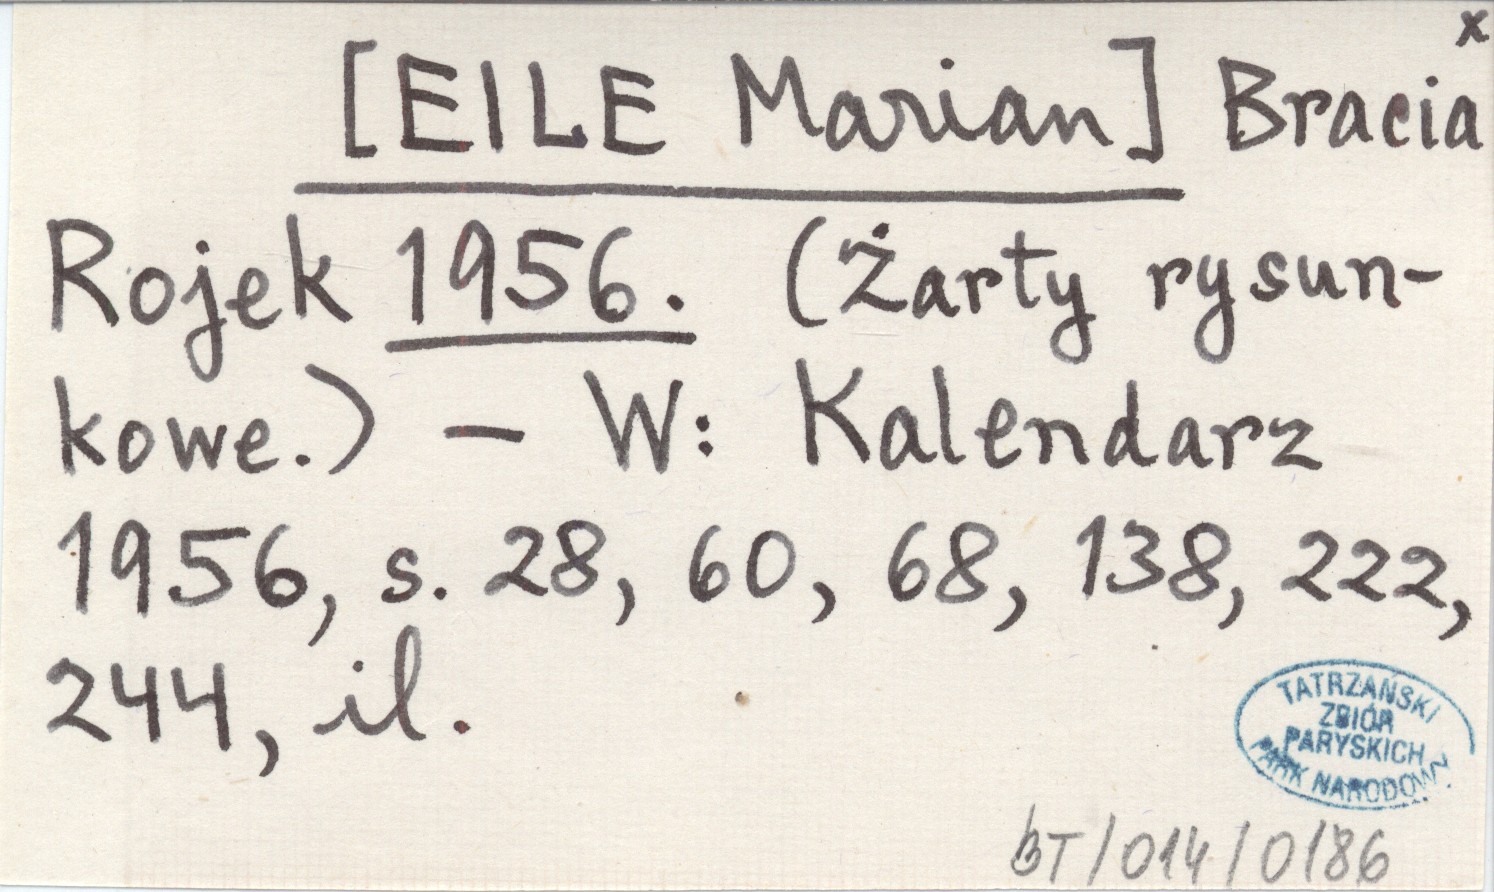 x
[EILE Marian] Bracia
Rojek 1956. (Żarty rysun-
kowe.) — W: Kalendarz
1956, s. 28, 60, 68, 138, 222,
244, il.
TATRZAŃSKI
ZBIÓR
PARYSKICH
PARK NARODOWY
BT/014/0186